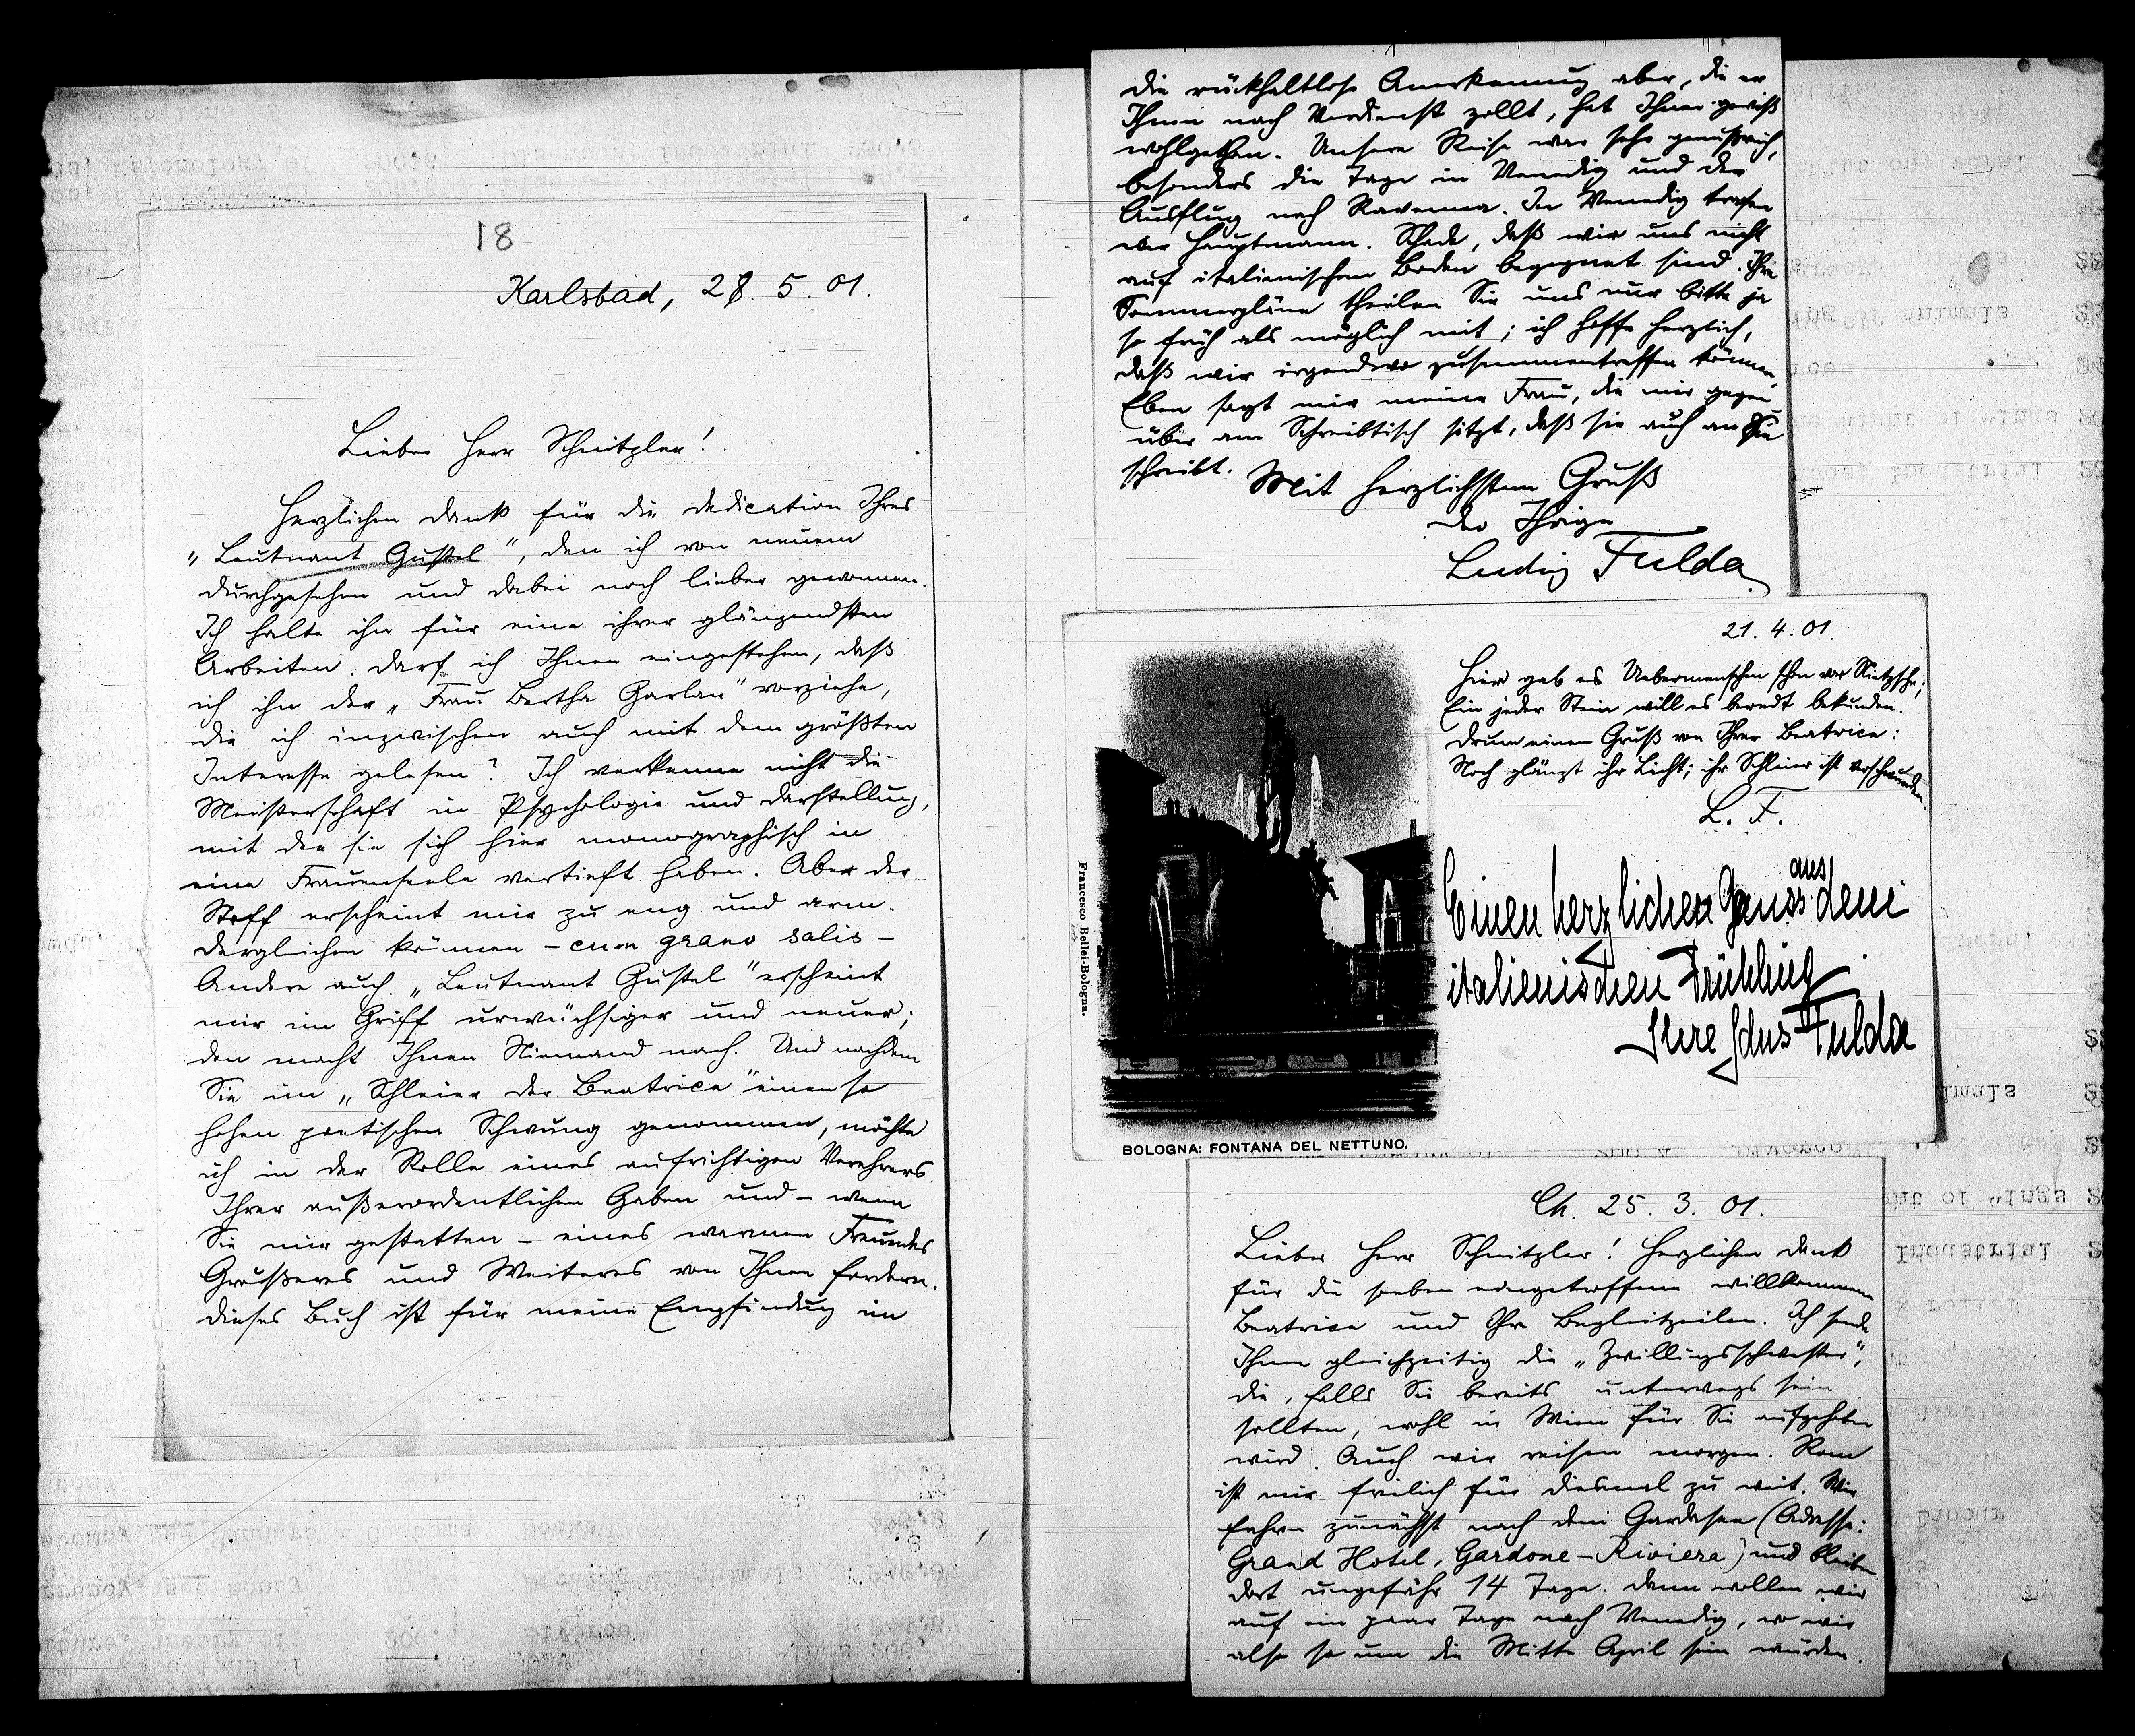 18
Karlsbad, 28. 5. 01.
Lieber Herr Schnitzler!
Herzlichen Dank für die Dedication Ihres
„Leutnant Gustel“, den ich von neuem
durchgesehen und dabei noch lieber gewonnen.
Ich halte ihn für eine ihrer glänzendsten
Arbeiten. Darf ich Ihnen eingestehen, daß
ich ihn der „Frau Bertha Garlan“ vorziehe,
die ich inzwischen auch mit dem größten
Interesse gelesen? Ich verkenne nicht die
Meisterschaft in Psychologie und Darstellung,
mit der sie sich hier monographisch in
eine Frauenseele vertieft haben. Aber der
Stoff erscheint mir zu eng und arm.
Dergleichen können – cum grano salis –
Andere auch. „Leutnant Gustel“ erscheint
mir im Griff urwüchsiger und neuer;
den macht Ihnen Niemand nach. Und nachdem
Sie im „Schleier der Beatrice“ einen so
hohen poetischen Schwung genommen, möchte
ich in der Rolle eines aufrichtigen Verehrers
Ihrer außerordentlichen Gaben und – wenn
Sie mir gestatten – eines warmen Freundes
Größeres und Weiteres von Ihnen fordern.
Dieses Buch ist für meine Empfindung im
die rückhaltlose Anerkennung aber, die er
Ihnen nach Verdienst zollt, hat Ihnen gewiß
wohlgethan. Unsere Reise war sehr genußreich,
besonders die Tage in Venedig und der
Ausflug nach Ravenna. In Venedig trafen
wir Hauptmann. Schade, daß wir uns nicht
auf italienischem Boden begegnet sind. Ihre
Sommerpläne theilen Sie uns nur bitte ja
so früh als möglich mit; ich hoffe herzlich,
daß wir irgendwo zusammentreffen können.
Eben sagt mir meine Frau, die mir gegen-
über am Schreibtisch sitzt, daß sie auch an Sie
schreibt.
Mit herzlichstem Gruß
der Ihrige
Ludwig Fulda.
21. 4. 01.
Hier gab es Uebermenschen schon vor Nietzsche;
Ein jeder Stein will es beredt bekunden.
Drum einen Gruß von Ihrer Beatrice:
Noch glänzt ihr Licht; ihr Schleier ist verschwunden.
L. F.
Einen herzlichen Gruss aus dem
italienischen Frühling
Ihre Idus Fulda
Francesco Bellei-Bologna.
BOLOGNA: FONTANA DEL NETTUNO.
Ch. 25. 3. 01.
Lieber Herr Schnitzler! Herzlichen Dank
für die soeben eingetroffene willkommene
Beatrice und Ihre Begleitzeilen. Ich sende
Ihnen gleichzeitig die „Zwillingsschwester“,
die, falls Sie bereits unterwegs sein
sollten, wohl in Wien für Sie aufgehoben
wird. Auch wir reisen morgen. Rom
ist mir freilich für diesmal zu weit. Wir
fahren zunächst nach dem Gardasee (Adresse:
Grand Hotel, Gardone-Riviera) und bleiben
dort ungefähr 14 Tage. Dann wollen wir
auf ein paar Tage nach Venedig, wo wir
also so um die Mitte April sein würden.